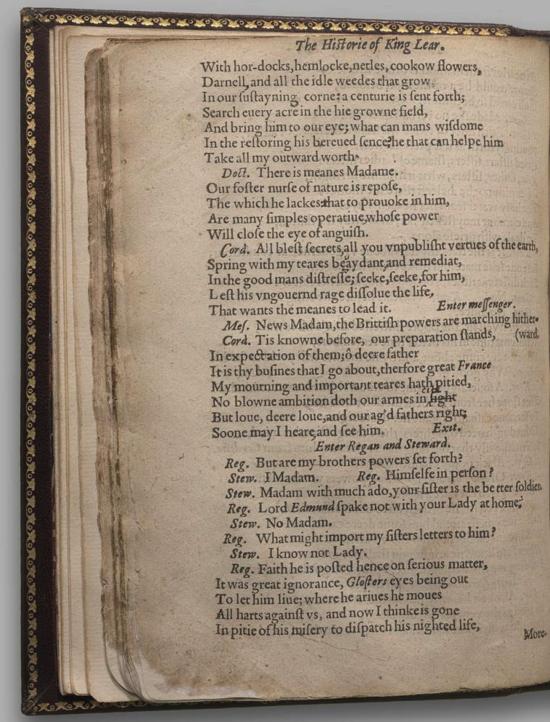 The Historie of King Lear.
With hor-docks, hemlocke, netles, cookow flowers,
Darnell, and all the idle weedes that grow,
In our sustayning, corne: a centurie is sent forth;
Search euery acre in the hie growne field,
And bring him to our eye; what can mans wisdome
In the restoring his bereued sence? he that can helpe him
Take all my outward worth.
Doct. There is meanes Madame.
Our foster nurse of nature is repose,
The which he lackes: that to prouoke in him,
Are many simples operatiue, whose power
Will close the eye of anguish.
Cord. All blest secrets, all you vnpublisht vertues of the earth,
Spring with my teares be aydant, and remediat,
In the good mans distresse; seeke, seeke, for him,
Lest his vngouernd rage dissolue the life,
That wants the meanes to lead it. Enter messenger.
Mes. News Madam, the Brittish powers are marching hither-
Cord. Tis knowne before, our preparation stands, (ward.
In expectation of them; ô deere father
It is thy busines that I go about, therfore great France
My mourning and important teares hath pitied,
No blowne ambition doth our armes in sight
But loue, deere loue, and our ag'd fathers right;
Soone may I heare, and see him. Exit.
Enter Regan and Steward.
Reg. But are my brothers powers set forth?
Stew. I Madam. Reg. Himselfe in person?
Stew. Madam with much ado, your sister is the better soldier.
Reg. Lord Edmund spake not with your Lady at home;
Stew. No Madam.
Reg. What might import my sisters letters to him?
Stew. I know not Lady.
Reg. Faith he is posted hence on serious matter,
It was great ignorance, Glosters eyes being out
To let him liue; where he ariues he moues
All harts against vs, and now I thinke is gone
In pitie of his misery to dispatch his nighted life,
More-